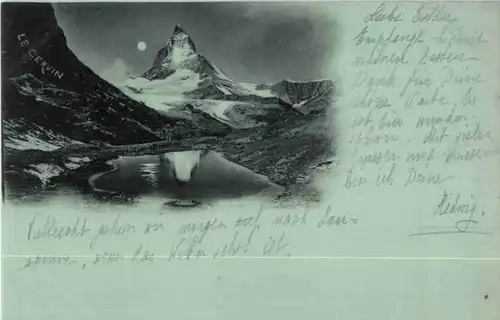 LE CERVIN
Liebe Esther
Empfange hiermit
meinen besten
Dank für Deine
Karte. Es
ist hier wunder-
schön. Mit vielen
Grüssen und Küssen
bin ich Deine
Hedwig.
Vielleicht gehen wir morgen auf nach Lau-
sanne, wenn das Wetter schön ist.